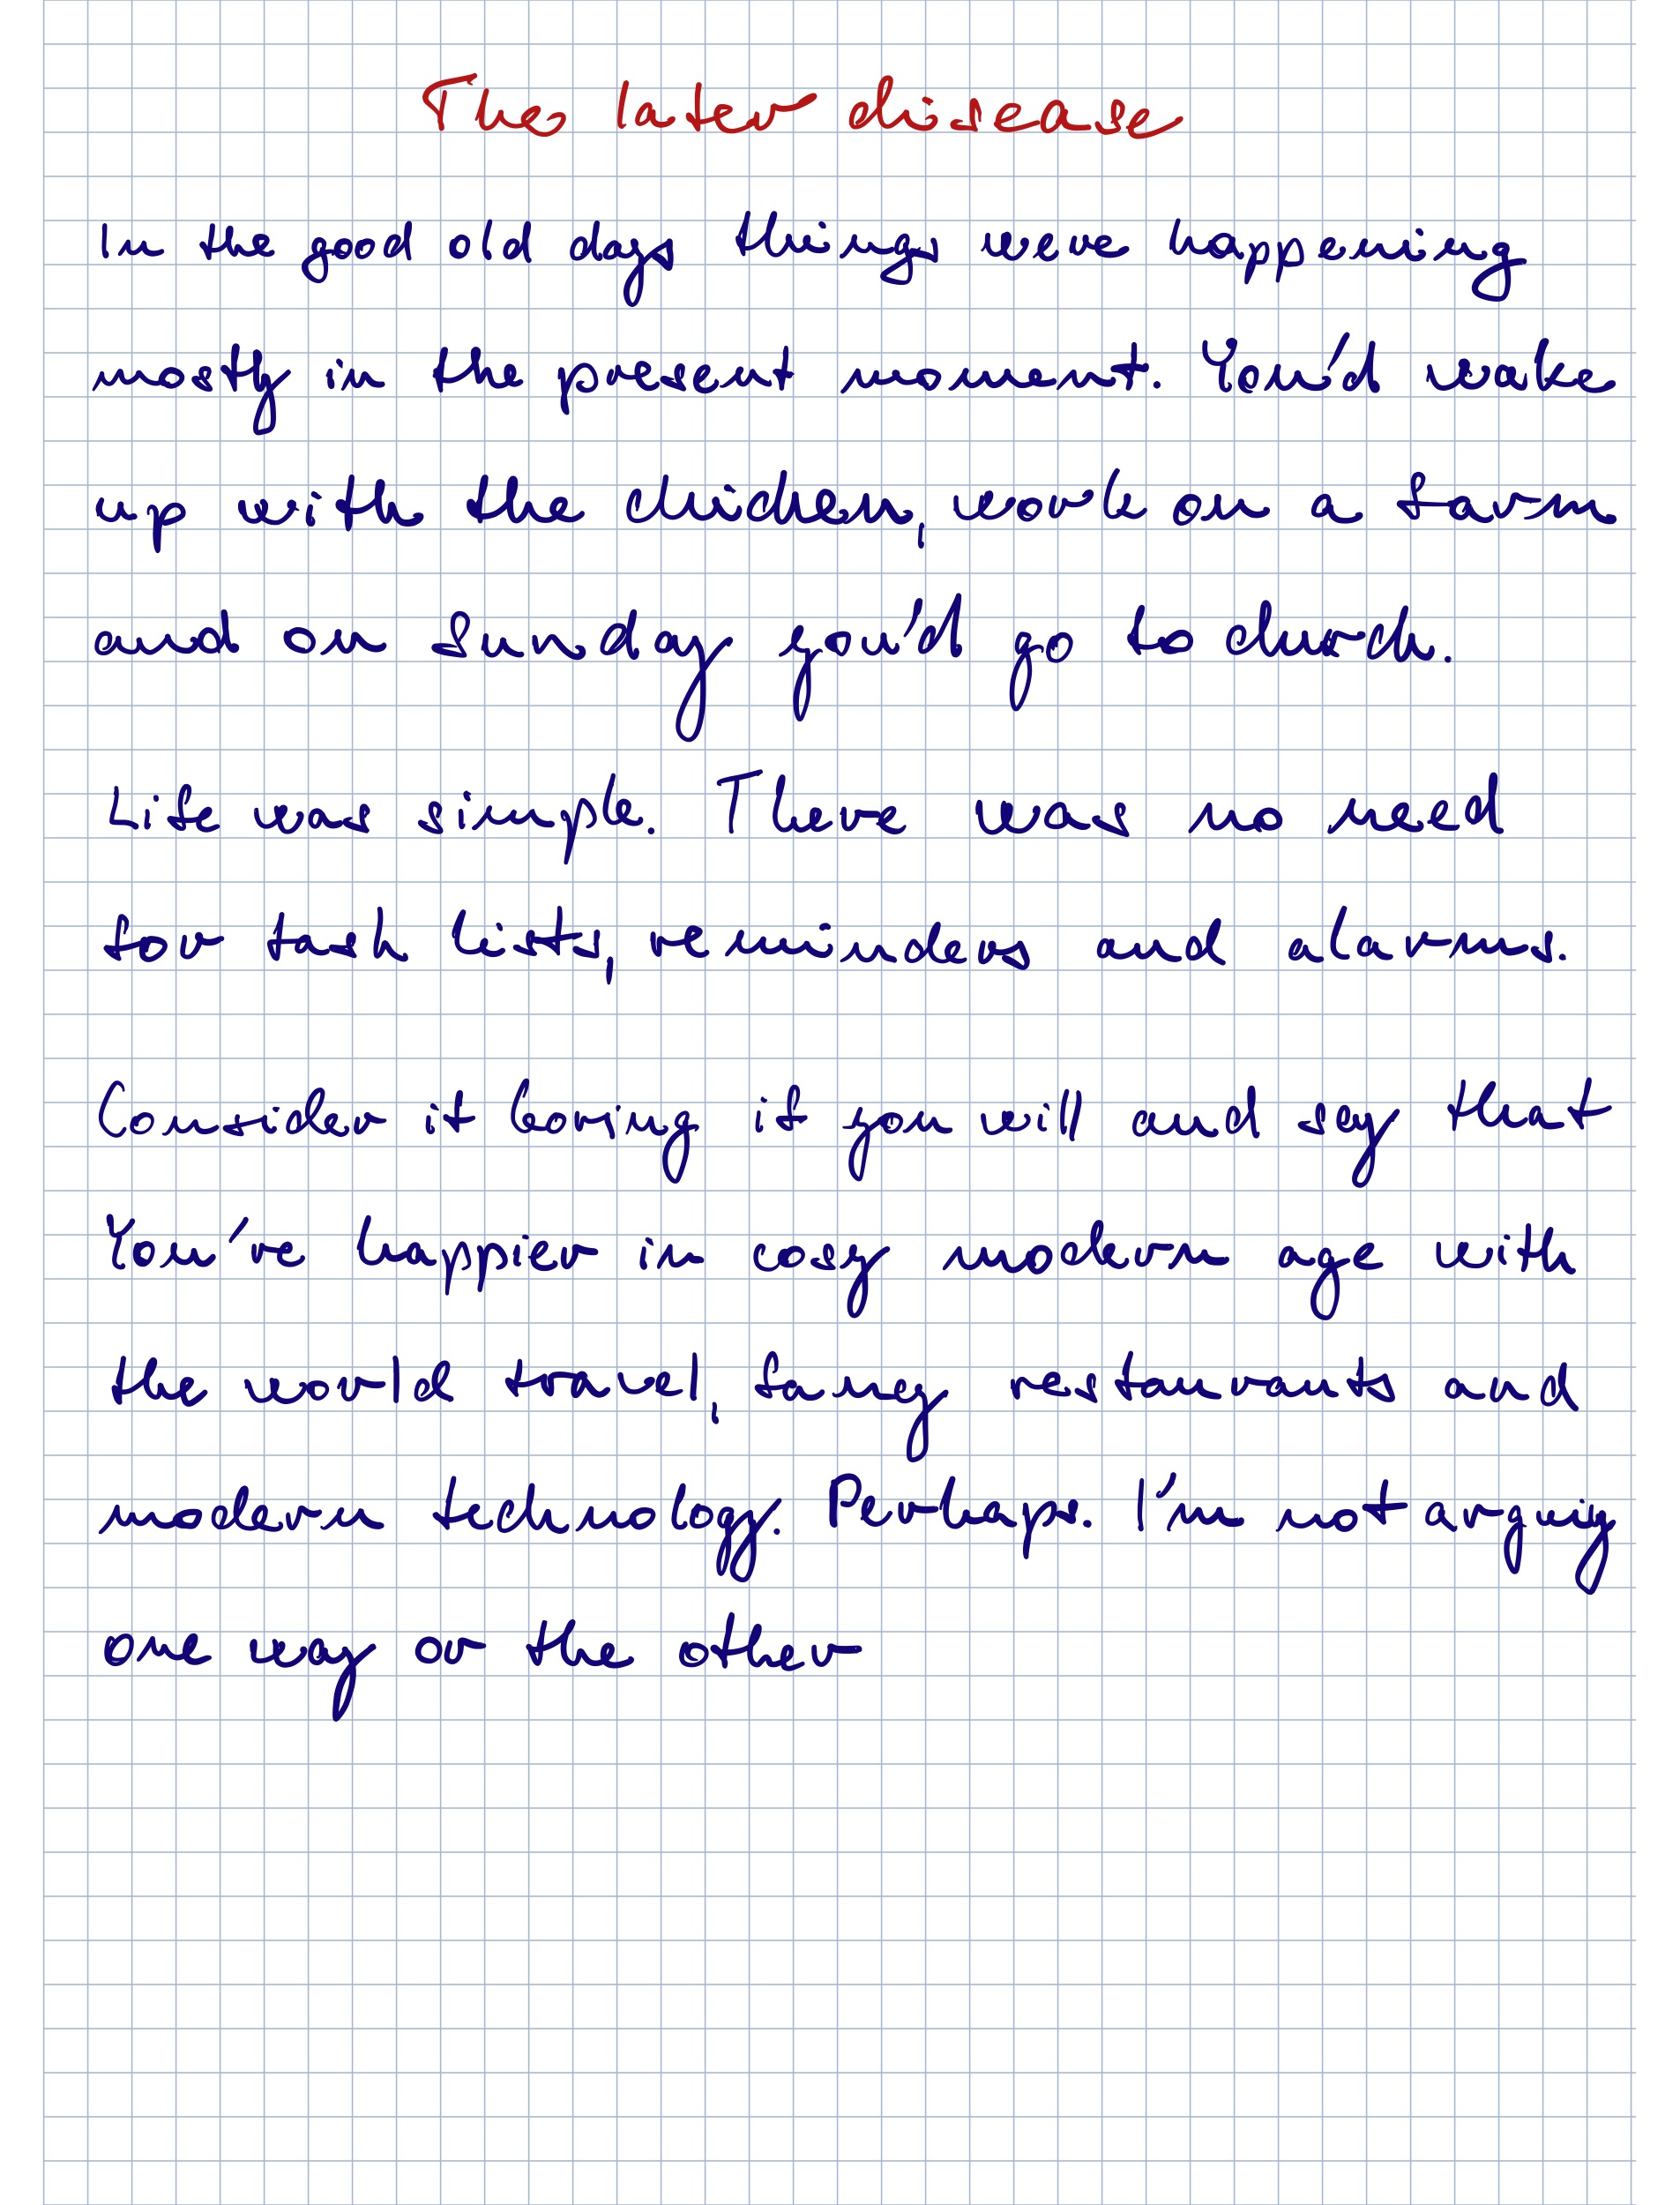 The later disease
In the good old days things were happening
mostly in the present moment. You'd wake
up with the chicken, work on a farm
and on Sunday you'd go to church.
Life was simple. There was no need
for task lists, reminders and alarms.
Consider it boring if you will and say that
You're happier in cosy modern age with
the world travel, fancy restaurants and
modern technology. Perhaps. I'm not arguing
one way or the other